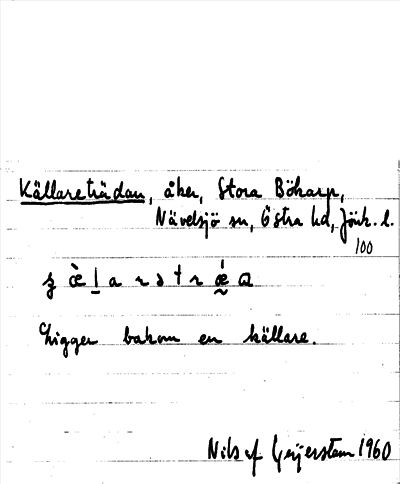 Källareträdan, åker, Stora Böharp,
Nävelsjö sn, Östra hd, Jönk. l.
100
Ligger bakom en källare.
Nils af Geijerstam 1960